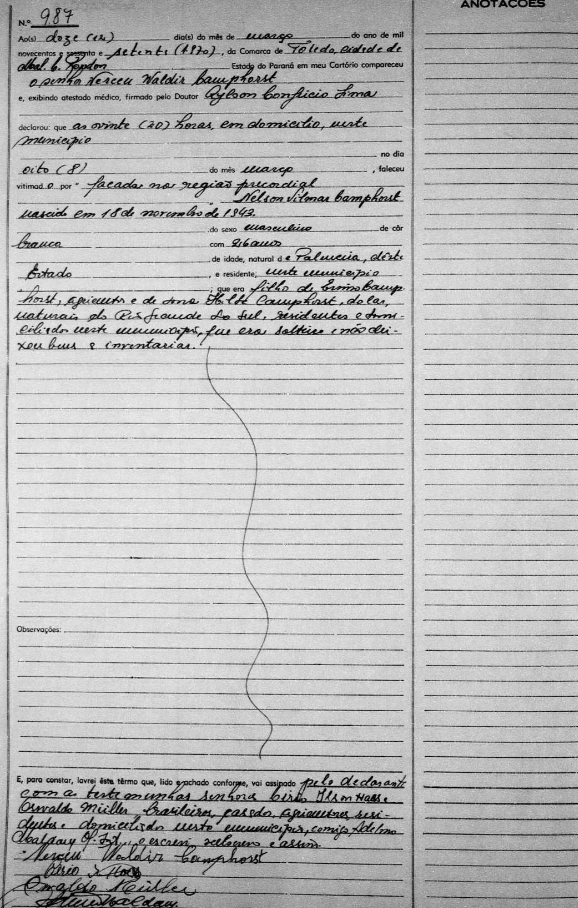 ANOTAÇÕES
N.º 987
Ao(s) doze (12) dia(s) do mês de março do ano de mil
novecentos e sessenta e setenta (1970), da Comarca de Toledo, cidade de
Mal. C. Rondon Estado do Paraná em meu Cartório compareceu
o senhor Nerceu Waldir Camphorst
e, exibindo atestado médico, firmado pelo Doutor Aylson Confucio Lima
declarou: que as vinte (20) horas, em domicilio, neste
municipio
no dia
oito (8) do mês março, faleceu
vitimado por "facada na região precordial
Nelson Silmar Camphorst
nascido em 18 de novembro de 1943
do sexo masculino de côr
branca com 26 anos
de idade, natural de Palmeira, dêste
Estado, e residente, neste municipio
, que era filho de Camp
horst, agricultor e de dona Hilda Camphorst, do lar,
naturais do Rio Grande do Sul, residentes e domi-
ciliados neste municipio, que era solteiro e não dei-
xou bens a inventariar.
Observações:
E, para constar, lavrei êste têrmo que, lido e achado conforme, vai assinado pelo declarante
com as testemunhas senhores Haas e
Oswaldo Müller, brasileiros, casado, agricultores, resi-
dentes e domiciliados neste municipio, comigo
escrevi, e assino
Waldir Camphorst
Oswaldo Müller